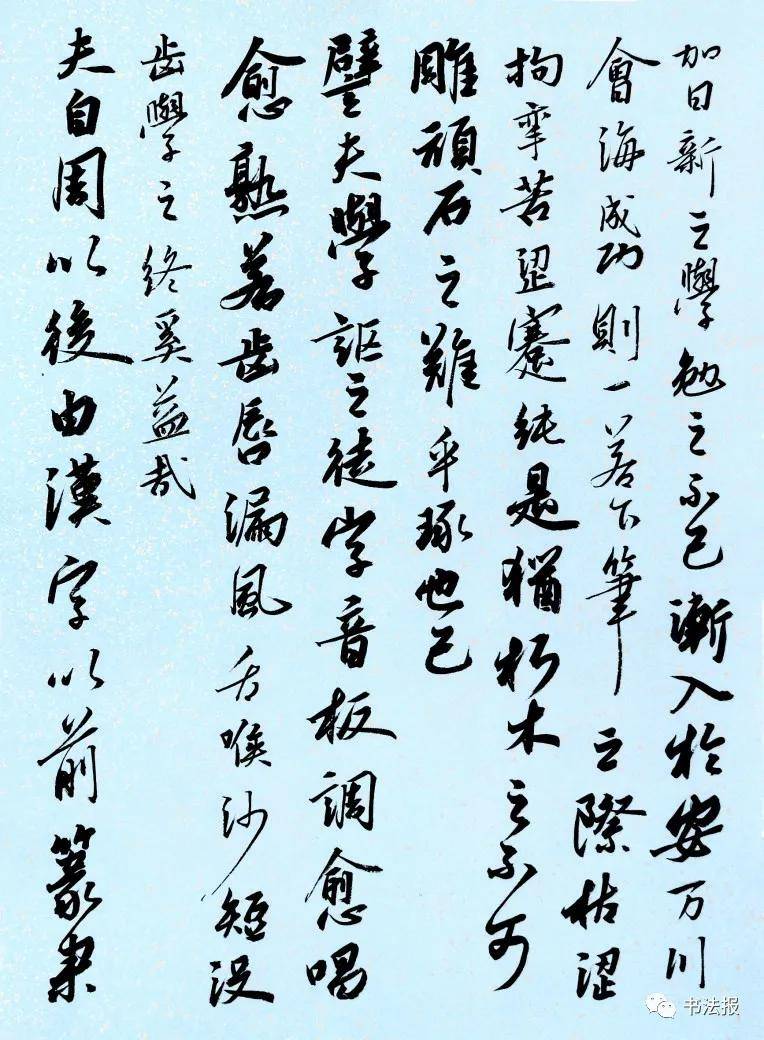 加日新之學勉之不已漸入於安万川
會海成功則一若下筆之際枯澀
拘挛苦澀蹇純是猶朽木之不可
雕頑石之難乎琢也已
譬夫學謳之徒字音板調愈唱
愈熟若齿唇漏風舌喉沙短没
齿學之终奚益哉
夫自周以後由漢字以前篆隶
书法报